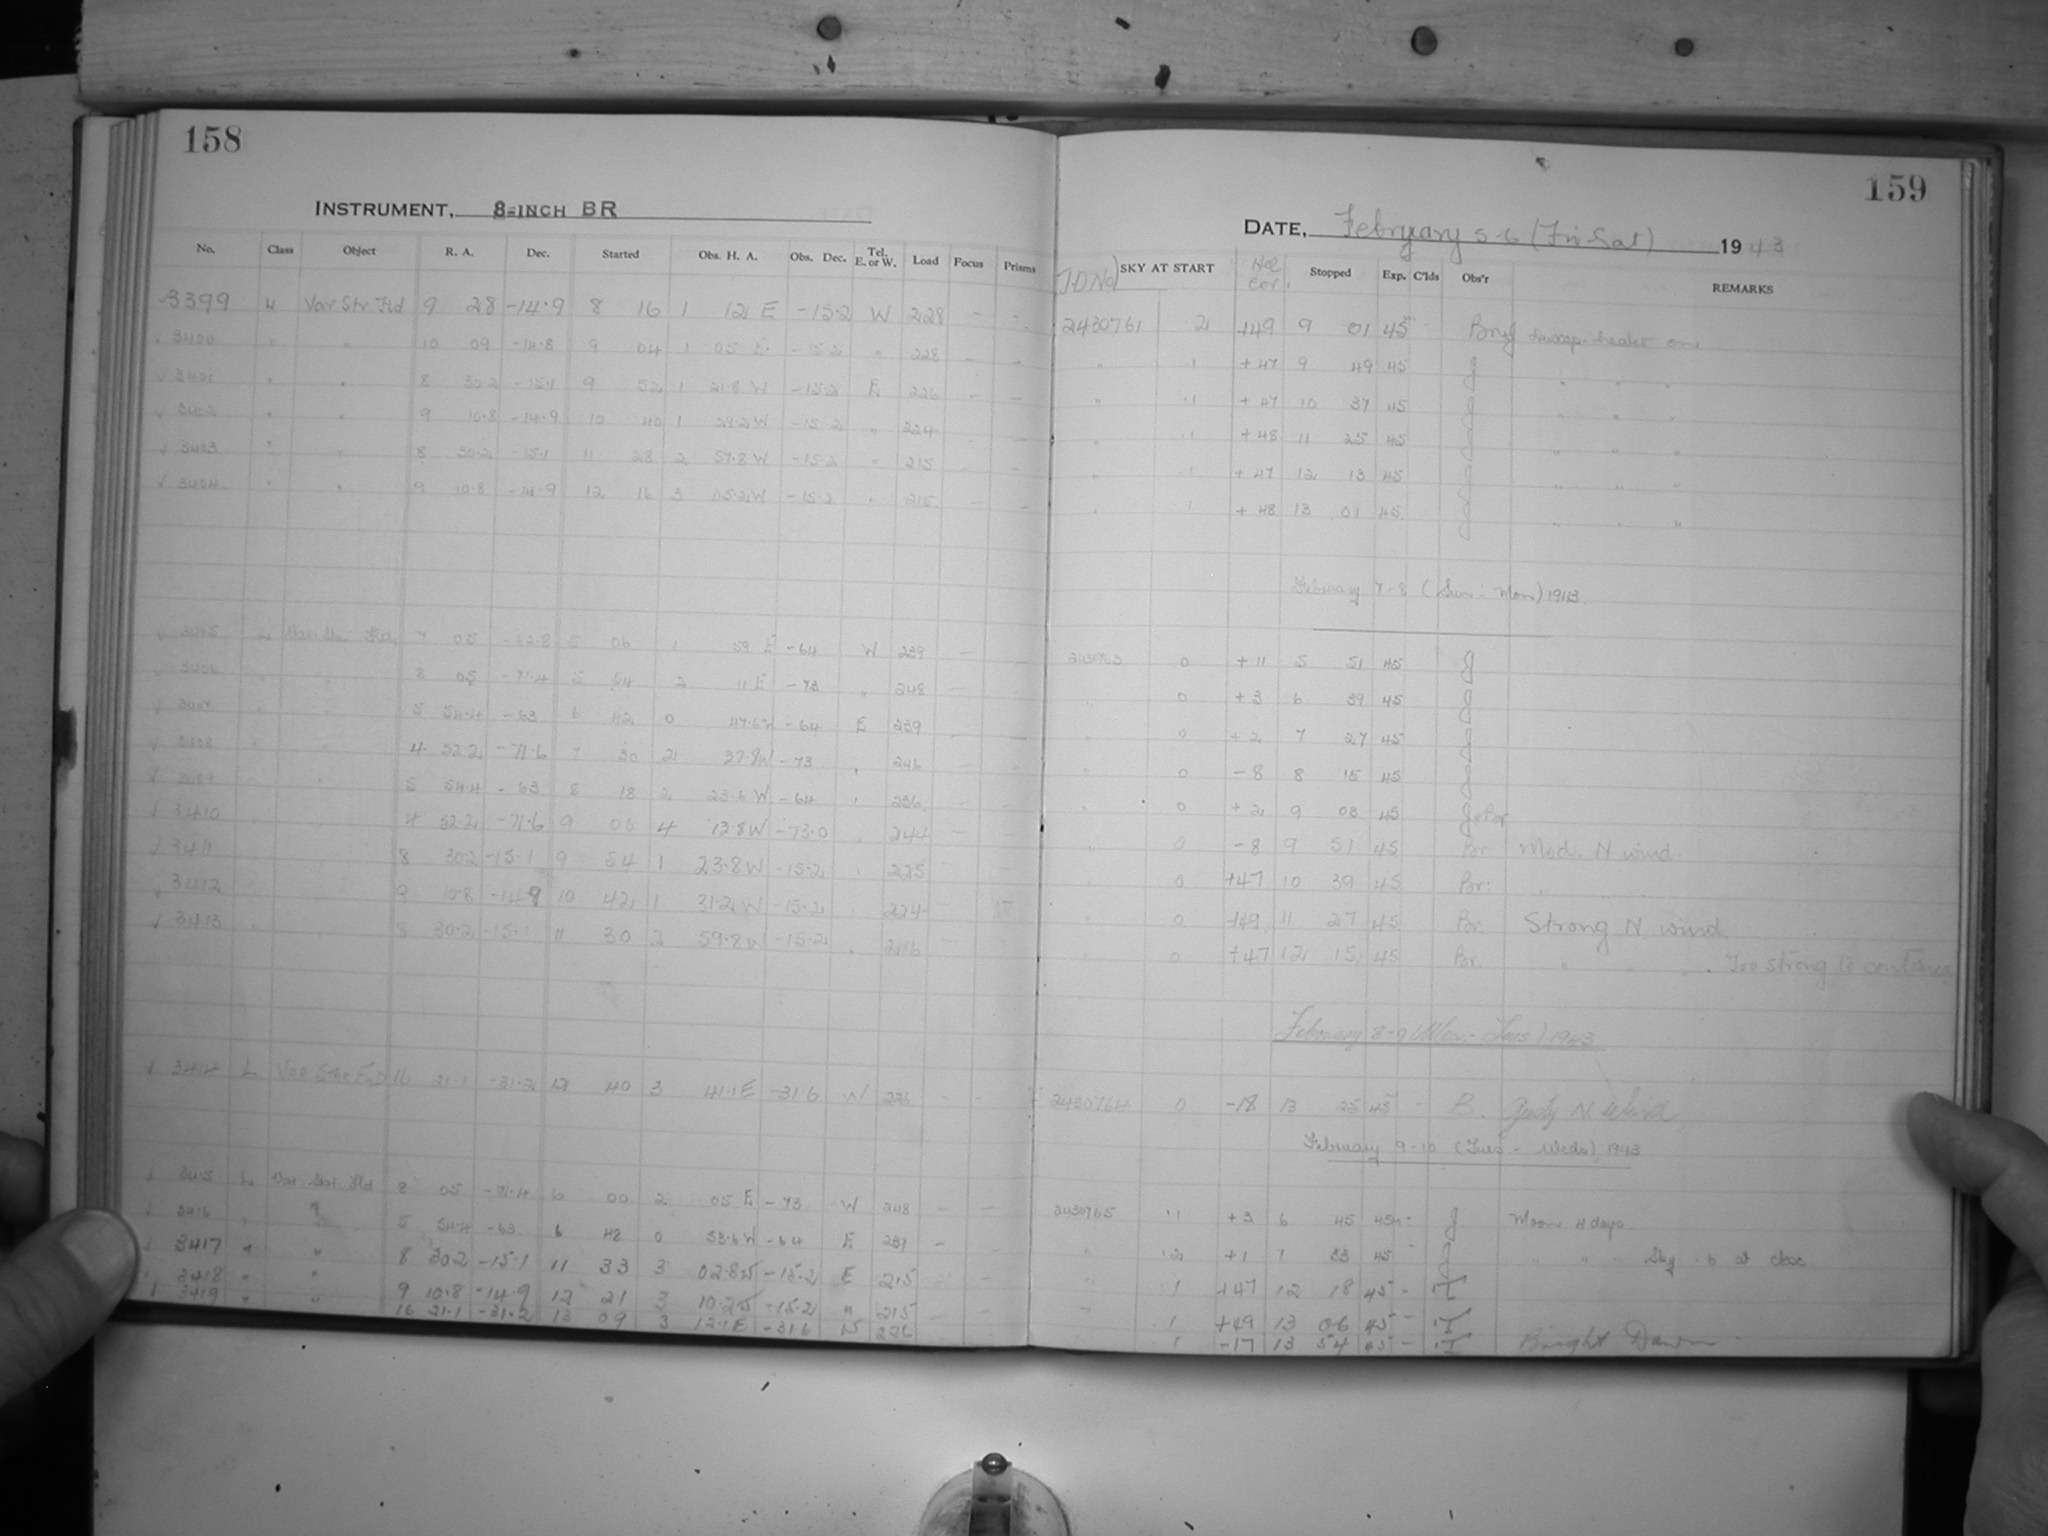 158
INSTRUMENT, 8-INCH BR
No. Class Object R. A. Dec. Started Obs. H. A. Obs. Dec. Tel. E. or W. Load Focus Prisms
3399 L Var Str. Fld 9 28 -14.9 8 16 1 12 E -15.2 W 228 - -
3400 " " 10 09 -14.8 9 04 1 05 E -15.2 " 228 - -
3401 " " 8 30.2 -15.1 9 52 1 21.8 W -15.2 E 226 - -
3402 " " 9 10.8 -14.9 10 40 1 29.2 W -15.2 " 224 - -
3403 " " 8 30.2 -15.1 11 28 2 57.8 W -15.2 " 215 - -
3404 " " 9 10.8 -14.9 12 16 3 05.2 W -15.2 " 215 - -
3405 L Var. Str. Fld. 7 05 5 06 1 59 E -64 W 239 - -
3406 8 05 -71.4 5 54 2 11 E -73 " 248 - -
3407 5 54.4 -63 6 42 0 47.6 W -64 E 239 - -
3408 4 52.2 -71.6 7 30 2 37.8 W -73 " 246 - -
3409 5 54.4 -63 8 18 2 23.6 W -64 " 236 - -
3410 4 52.2 -71.6 9 06 4 13.8 W -73.0 244 - -
3411 8 30.2 -15.1 9 54 1 23.8 W -15.2 225
3412 9 10.8 -14.9 10 42 1 31.2 W -15.2 224
3413 8 30.2 -15.1 11 30 2 59.8 W -15.2 216 - -
3414 L Var Star Fld 16 21.1 -31.2 12 40 3 41.1 E -31.6 W 226 - -
3415 L Var. Str. Fld 8 05 -71.4 6 00 2 05 E -73 W 248 - -
3416 " " 5 54.4 -63 6 48 0 53.6 W -64 E 239 -
3417 " " 8 30.2 -15.1 11 33 3 02.8 W -15.2 E 215
3418 " " 9 10.8 -14.9 12 21 3 10.2 W -15.2 " 215
3419 " " 16 21.1 -31.2 13 09 3 12.1 E -31.6 W 226
159
DATE, February 5-6 (Fri Sat) 1943
J.D No SKY AT START Hae Cor. Stopped Exp. C'lds Obs'r REMARKS
2430761 .2 +49 9 01 45 - Br+J Dewcap heater on
" .1 +47 9 49 45 J " " "
" .1 +47 10 37 45 J " " "
" .1 +48 11 25 45 J " " "
" .1 +47 12 13 45 J " " "
" .1 +48 13 01 45 J " " "
February 7-8 (Sun - Mon) 1943.
2430763 0 +11 5 51 45 J
" 0 +3 6 39 45 J
" 0 +2 7 27 45 J
" 0 -8 8 15 45 J
" 0 +2 9 03 45 J+Br
" 0 -8 9 51 45 Br Mod. N wind
" 0 +47 10 39 45 Br. "
" 0 +49 11 27 45 Br. Strong N. wind
" 0 +47 12 15 45 Br. " " . Too strong to continue
February 8-9 (Mon.- Tues.) 1943
2430764 0 -18 13 25 45 - B. Gusty N. Wind
February 9-10 (Tues - Weds), 1943
2430765 .1 +3 6 45 45 - J Moon 4 days.
" .2 +1 7 33 45 - J " " " Sky .6 at close
" .1 +47 12 18 45 - T
" .1 +49 13 06 45 - T
.1 -17 13 54 45 - T Bright Dawn